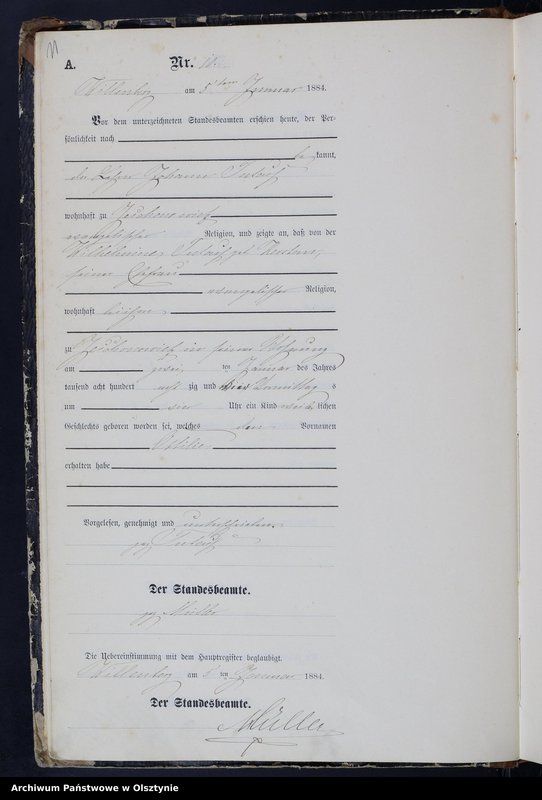 11
A.
Nr. 10.
am 5ten Januar 1884.
Vor dem unterzeichneten Standesbeamten erschien heute, der Per-
sönlichkeit nach
be kannt,
der Johann
wohnhaft zu
evangelischer Religion, und zeigte an, daß von der
Wilhelmine geb.
seiner Ehefrau
evangelischer Religion,
wohnhaft bei ihm
zu in seiner Wohnung
am zwei ten Januar des Jahres
tausend acht hundert acht zig und vier Vormittag s
um vier Uhr ein Kind weib lichen
Geschlechts geboren worden sei, welches den Vornamen
Ottilie
erhalten habe
Vorgelesen, genehmigt und unterschrieben.
gez.
Der Standesbeamte.
gez. Müller
Die Uebereinstimmung mit dem Hauptregister beglaubigt.
am 5 ten Januar 1884.
Der Standesbeamte.
Müller
Archiwum Państwowe w Olsztynie